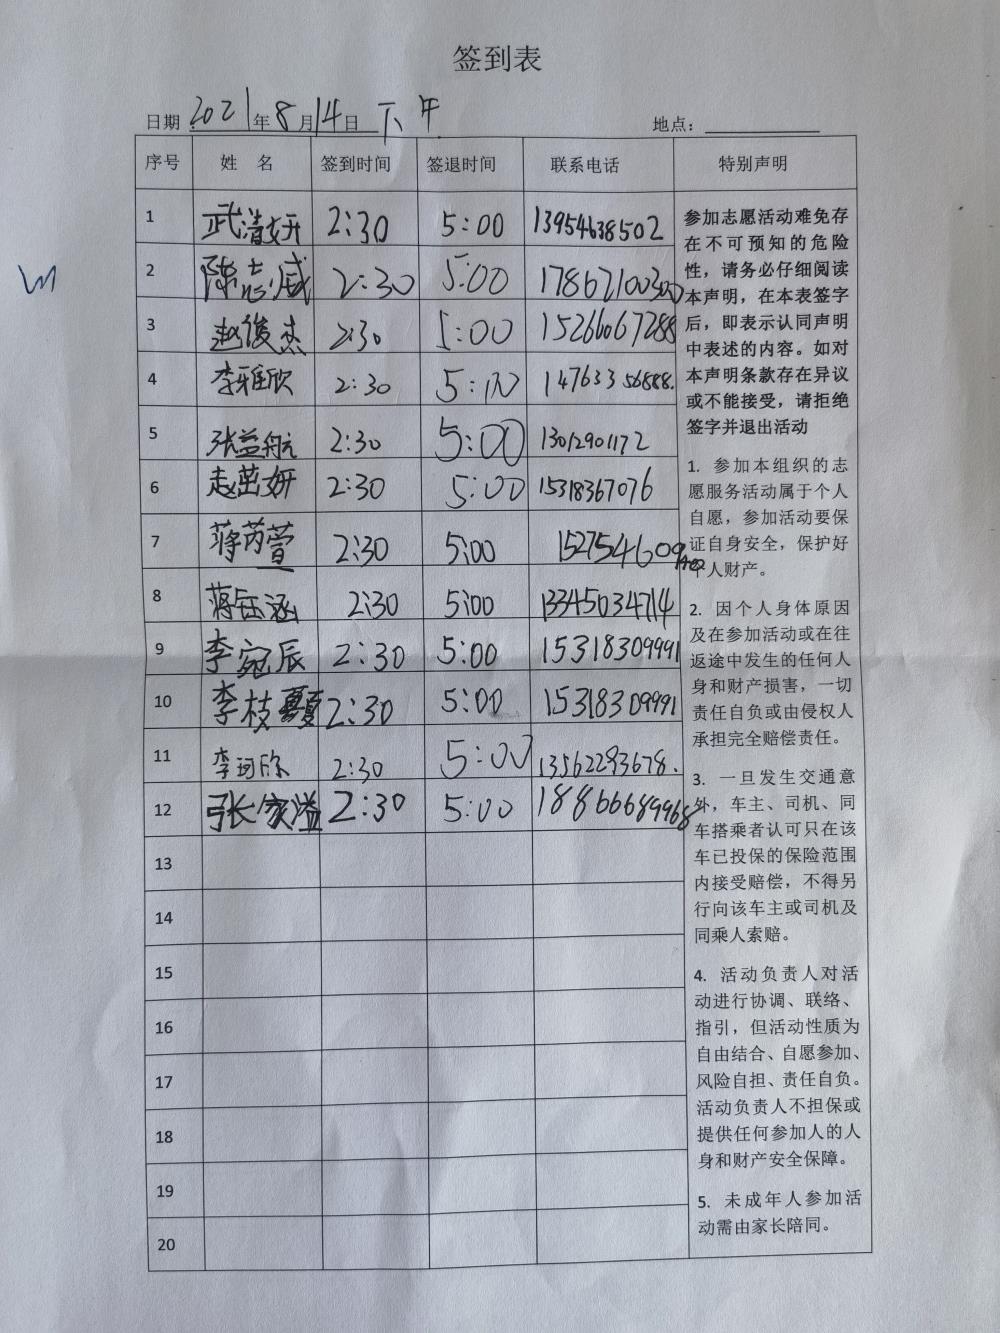 签到表
日期 2021年8月14日 下午
地点：
序号 姓 名 签到时间 签退时间 联系电话 特别声明
1 武清妍 2:30 5:00 13954638502
2 陈志威 2:30 5:00 17862100300
3 赵俊杰 2:30 5:00 15266067288
4 李雅欣 2:30 5:00 14763356888.
5 张益航 2:30 5:00 13012901172
6 赵茁妍 2:30 5:00 15318367076
7 蒋芮萱 2:30 5:00 152754609
8 蒋钰涵 2:30 5:00 13345034714
9 李宛辰 2:30 5:00 15318309991
10 李枝夏 2:30 5:00 15318309991
11 李珂欣 2:30 5:00 13562293678.
12 张家溢 2:30 5:00 18866689968
13
14
15
16
17
18
19
20
参加志愿活动难免存
在不可预知的危险
性，请务必仔细阅读
本声明，在本表签字
后，即表示认同声明
中表述的内容。如对
本声明条款存在异议
或不能接受，请拒绝
签字并退出活动
1. 参加本组织的志
愿服务活动属于个人
自愿，参加活动要保
证自身安全，保护好
个人财产。
2. 因个人身体原因
及在参加活动或在往
返途中发生的任何人
身和财产损害，一切
责任自负或由侵权人
承担完全赔偿责任。
3. 一旦发生交通意
外，车主、司机、同
车搭乘者认可只在该
车已投保的保险范围
内接受赔偿，不得另
行向该车主或司机及
同乘人索赔。
4. 活动负责人对活
动进行协调、联络、
指引，但活动性质为
自由结合、自愿参加、
风险自担、责任自负。
活动负责人不担保或
提供任何参加人的人
身和财产安全保障。
5. 未成年人参加活
动需由家长陪同。